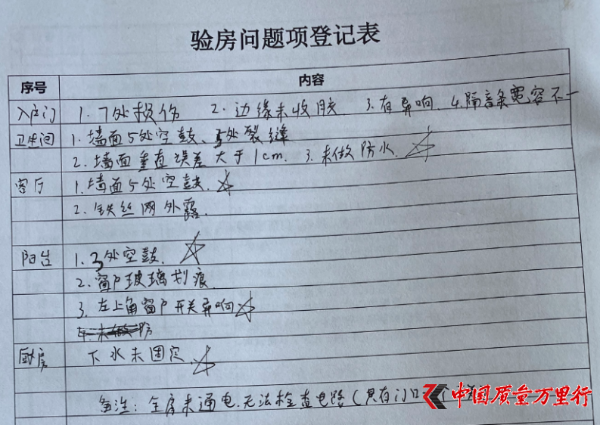 验房问题项登记表
序号 内容
入户门 1. 7处损伤 2. 边缘未收胶 3. 有异响 4. 隔音条宽容不一
卫生间 1. 墙面5处空鼓、5处裂缝
2. 墙面垂直误差大于1cm. 3. 未做防水
客厅 1. 墙面5处空鼓.
2. 铁丝网外露.
阳台 1. 3处空鼓.
2. 窗户玻璃划痕.
3. 左上角窗户开关异响
厨房 下水未固定
备注: 全房未通电.无法检查电路(只有门口
中国质量万里行